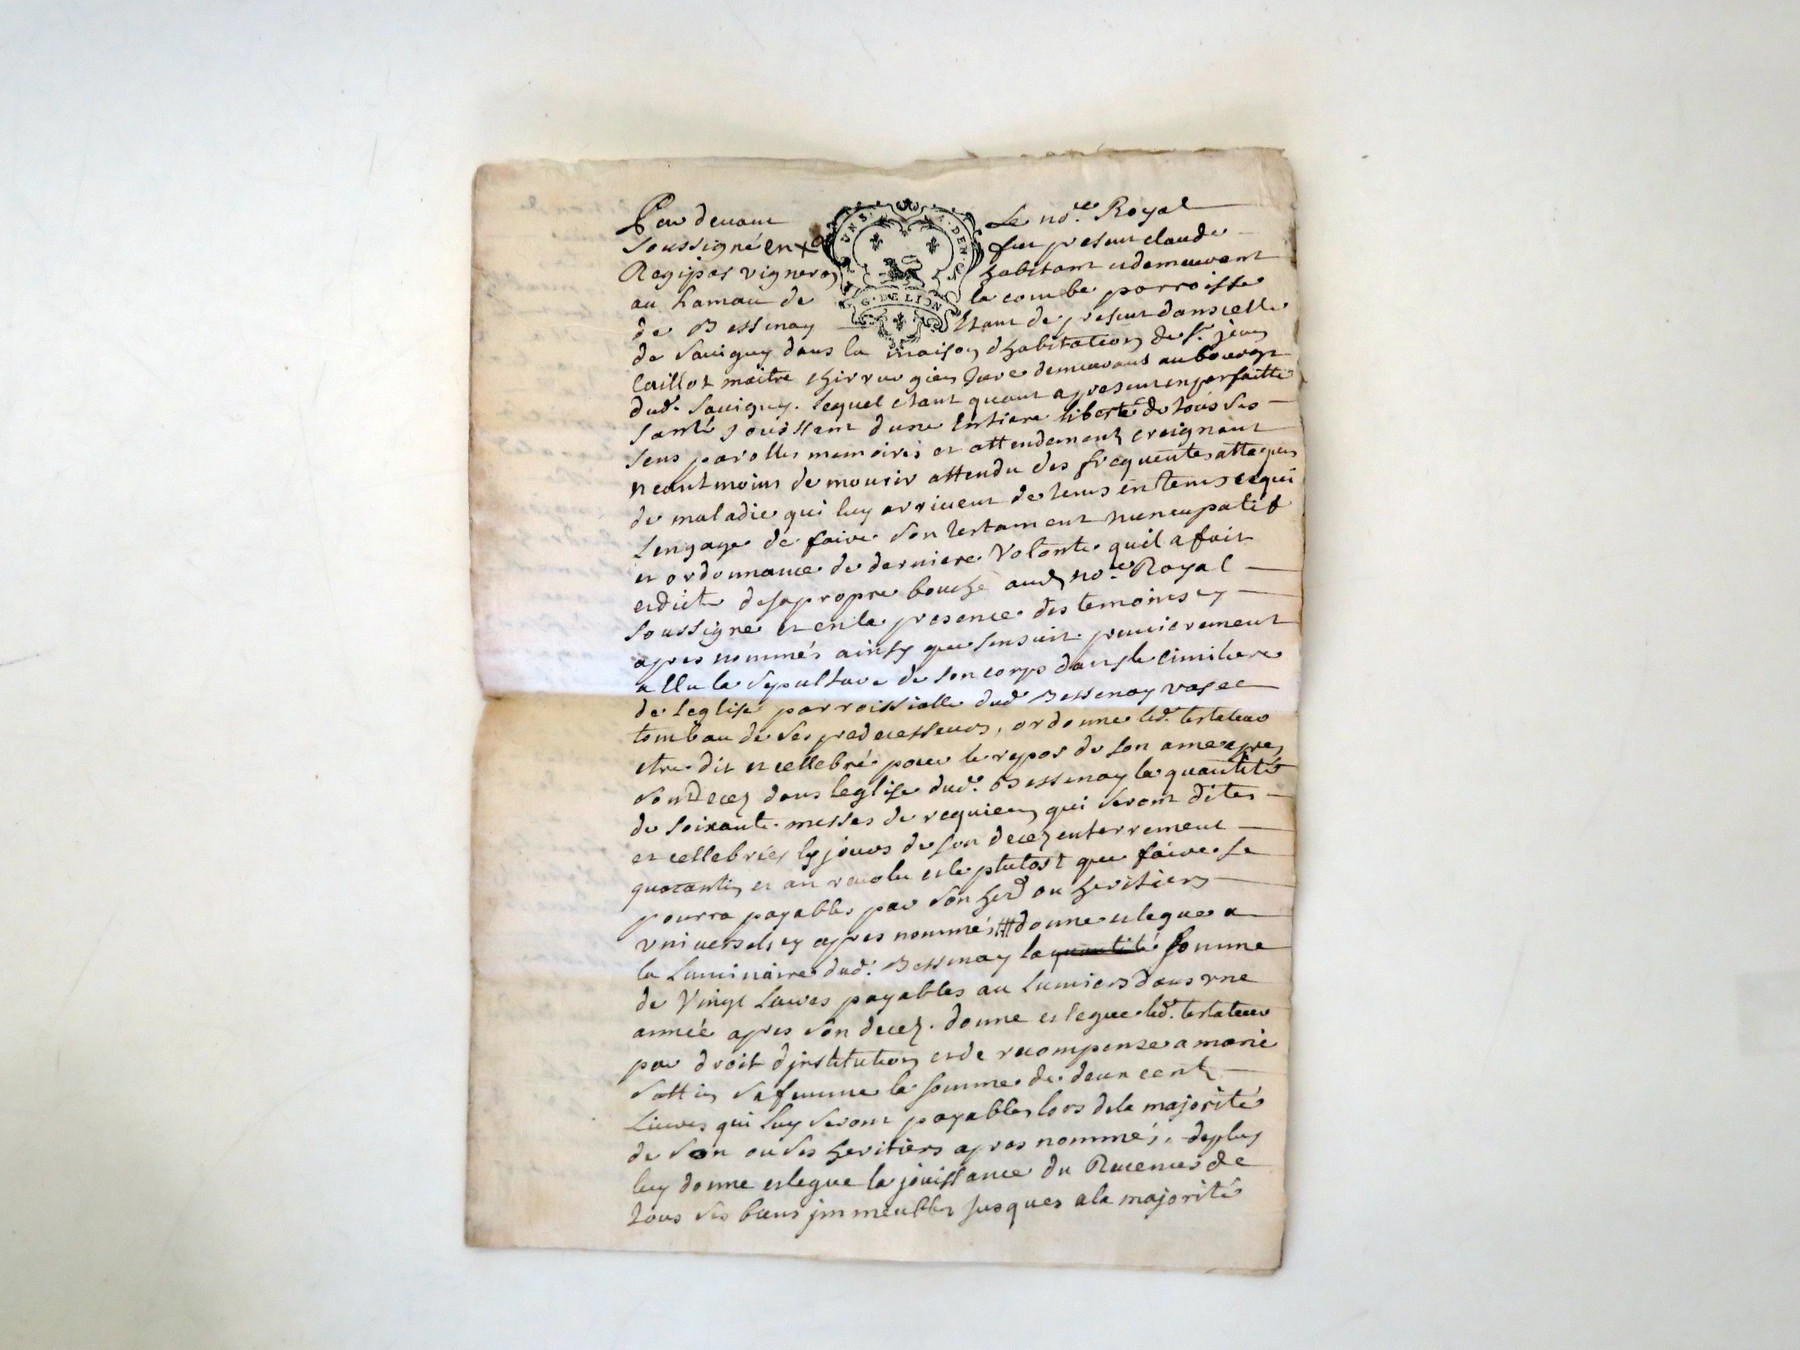 Par devant Le no.re Royal
soussigné en x fut present claude
Regipas vigneron habitant et demeurant
au hamau de la combe parroisse
de Bessenay Etant de present dans celle
UN S. DEN
G. DE LION
de Savigny dans la maison d'habitation de Sr. jean
Caillot maitre chirurgien Juré demeurant au bourg
dud. Savigny. lequel etant quant a present en parfaitte
santé jouissant d'une Entiere liberté de tous ses
sens parolles memoires et attendement creignant
neantmoins de mourir attendu des frequentes attaques
de maladie qui luy arrivent de tems en tems ce qui
lengage de faire son testament nuncupatif
et ordonnance de derniere Volonté quil a fait
et dicté de sa propre bouche aud. no.re Royal
soussigné et en la presence des temoins cy
apres nommés ainsy que sensuit. premierement
a Ellu la sepulture de son corps dans le cimitiere
de leglise parroissialle dud. Bessenay
tombau de ses predecesseurs, ordonne led. testateur
etre dit et cellebré pour le repos de son ame apres
son decez dans leglise dud. Bessenay la quantité
de soixante messes de requiem qui seront dites
et cellebrées les jours de son decez enterrement
quarantin et an revolu et le plutost que faire se
pourra payables par son herd. ou heritiers
vniversels cy apres nommés donne et legue a
la Luminaire dud. Bessenay la quantité somme
de Vingt Livres payables au Lumiers dans vne
année apres son decez. donne et legue led. testateur
par droit d'institution et de recompense a marie
sa femme la somme de deux cent
Livres qui luy seront payables lors de la majorité
de son ou ses heritiers apres nommés, deplus
luy donne et legue la jouissance du Revenus de
tous ses biens immeubles jusques a la majorité